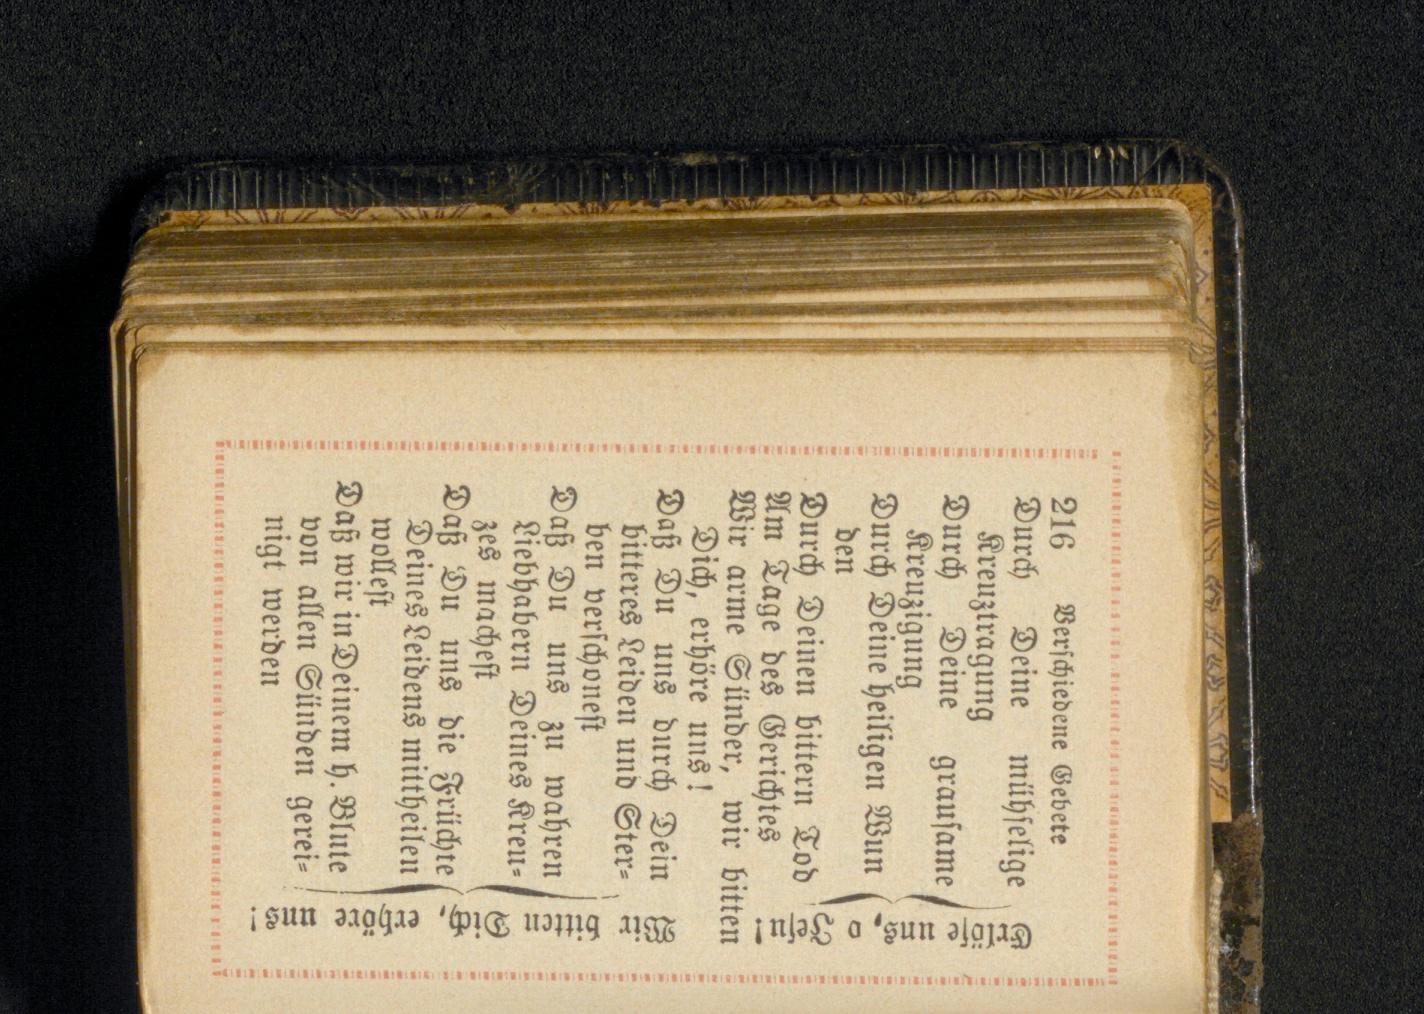 216 Verschiedene Gebete
Durch Deine mühselige
Kreuztragung
Durch Deine grausame
Kreuzigung
Durch Deine heiligen Wun
den
Durch Deinen bittern Tod
Erlöse uns, o Jesu!
Am Tage des Gerichtes
Wir arme Sünder, wir bitten
Dich, erhöre uns!
Daß Du uns durch Dein
bitteres Leiden und Ster-
ben verschonest
Daß Du uns zu wahren
Liebhabern Deines Kreu-
zes machest
Daß Du uns die Früchte
Deines Leidens mittheilen
wollest
Daß wir in Deinem h. Blute
von allen Sünden gerei-
nigt werden
Wir bitten Dich, erhöre uns!